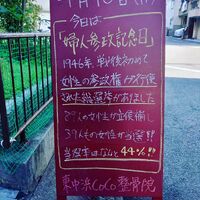 月10日
今日は
「婦人参政記念日」
1946年 戦後初めて
女性の参政権が行使
された総選挙がありました
人の女性が立候補し
39人もの女性が当選!!
当選率はなんと44%!!
東中浜CoCo整骨院